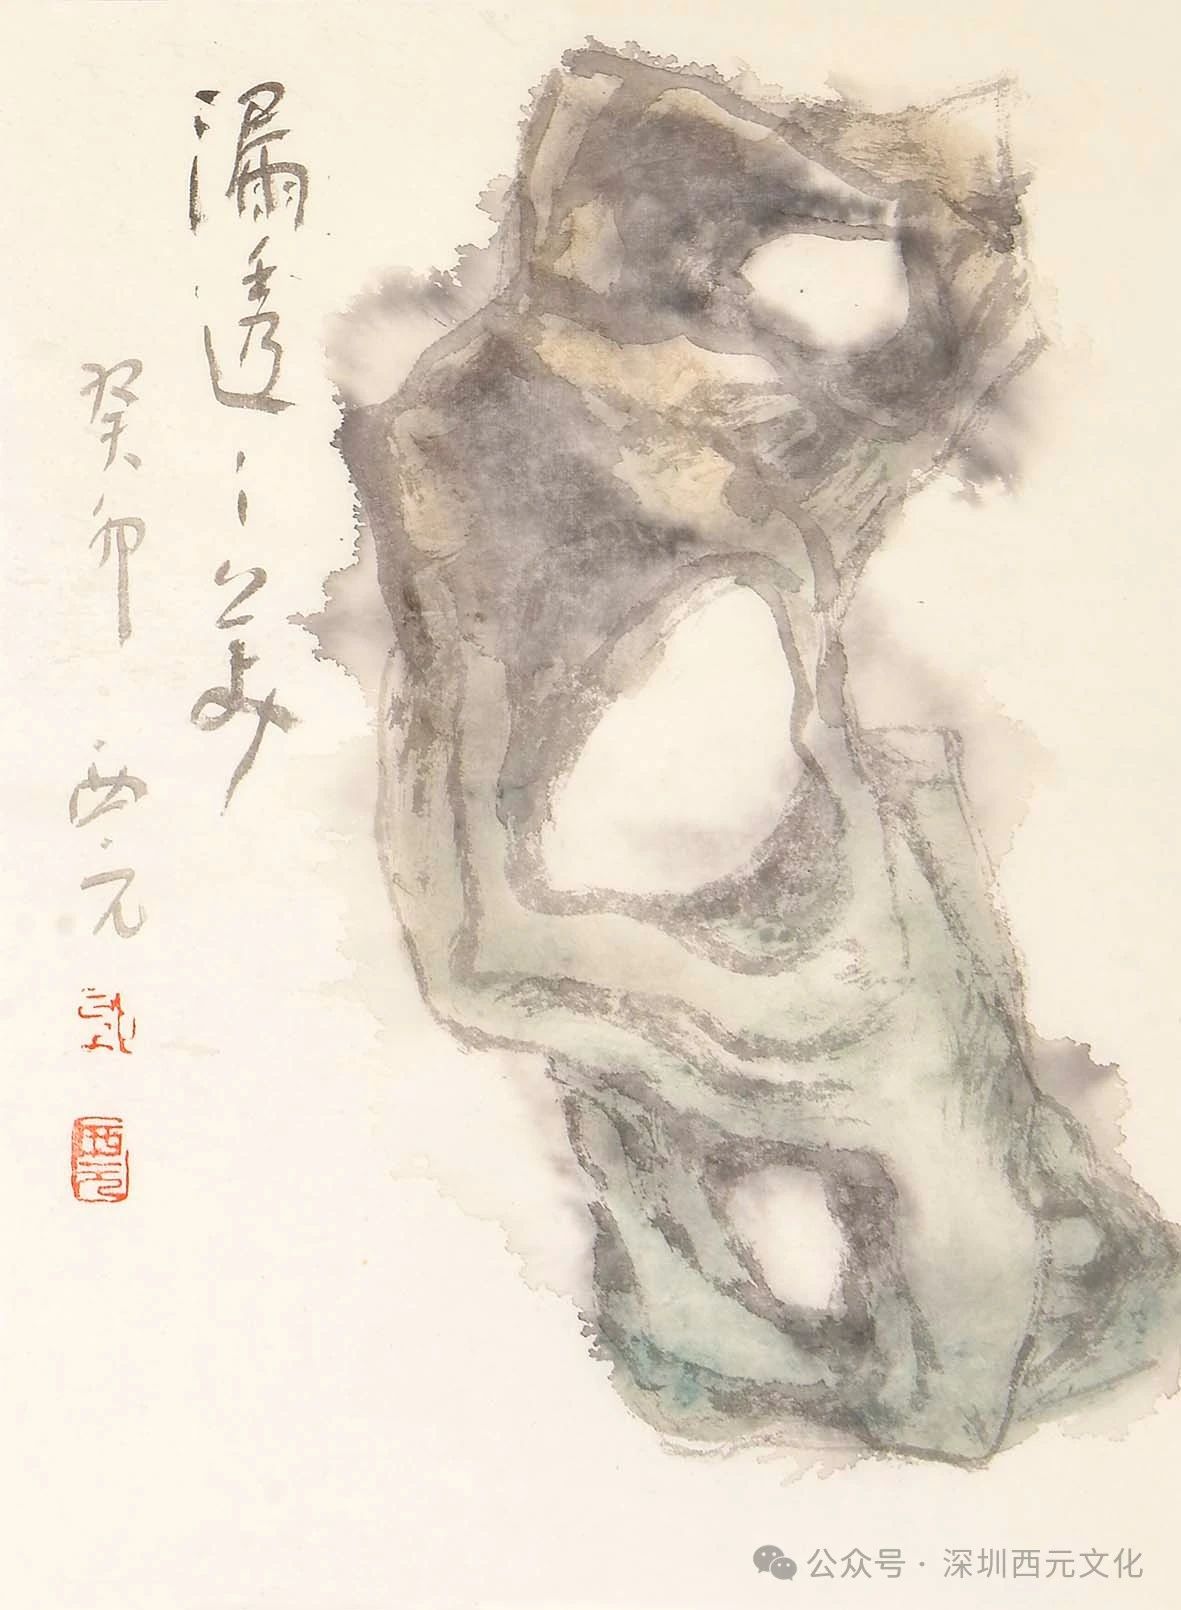 漏透之美
癸卯 西元
西元
公众号 · 深圳西元文化